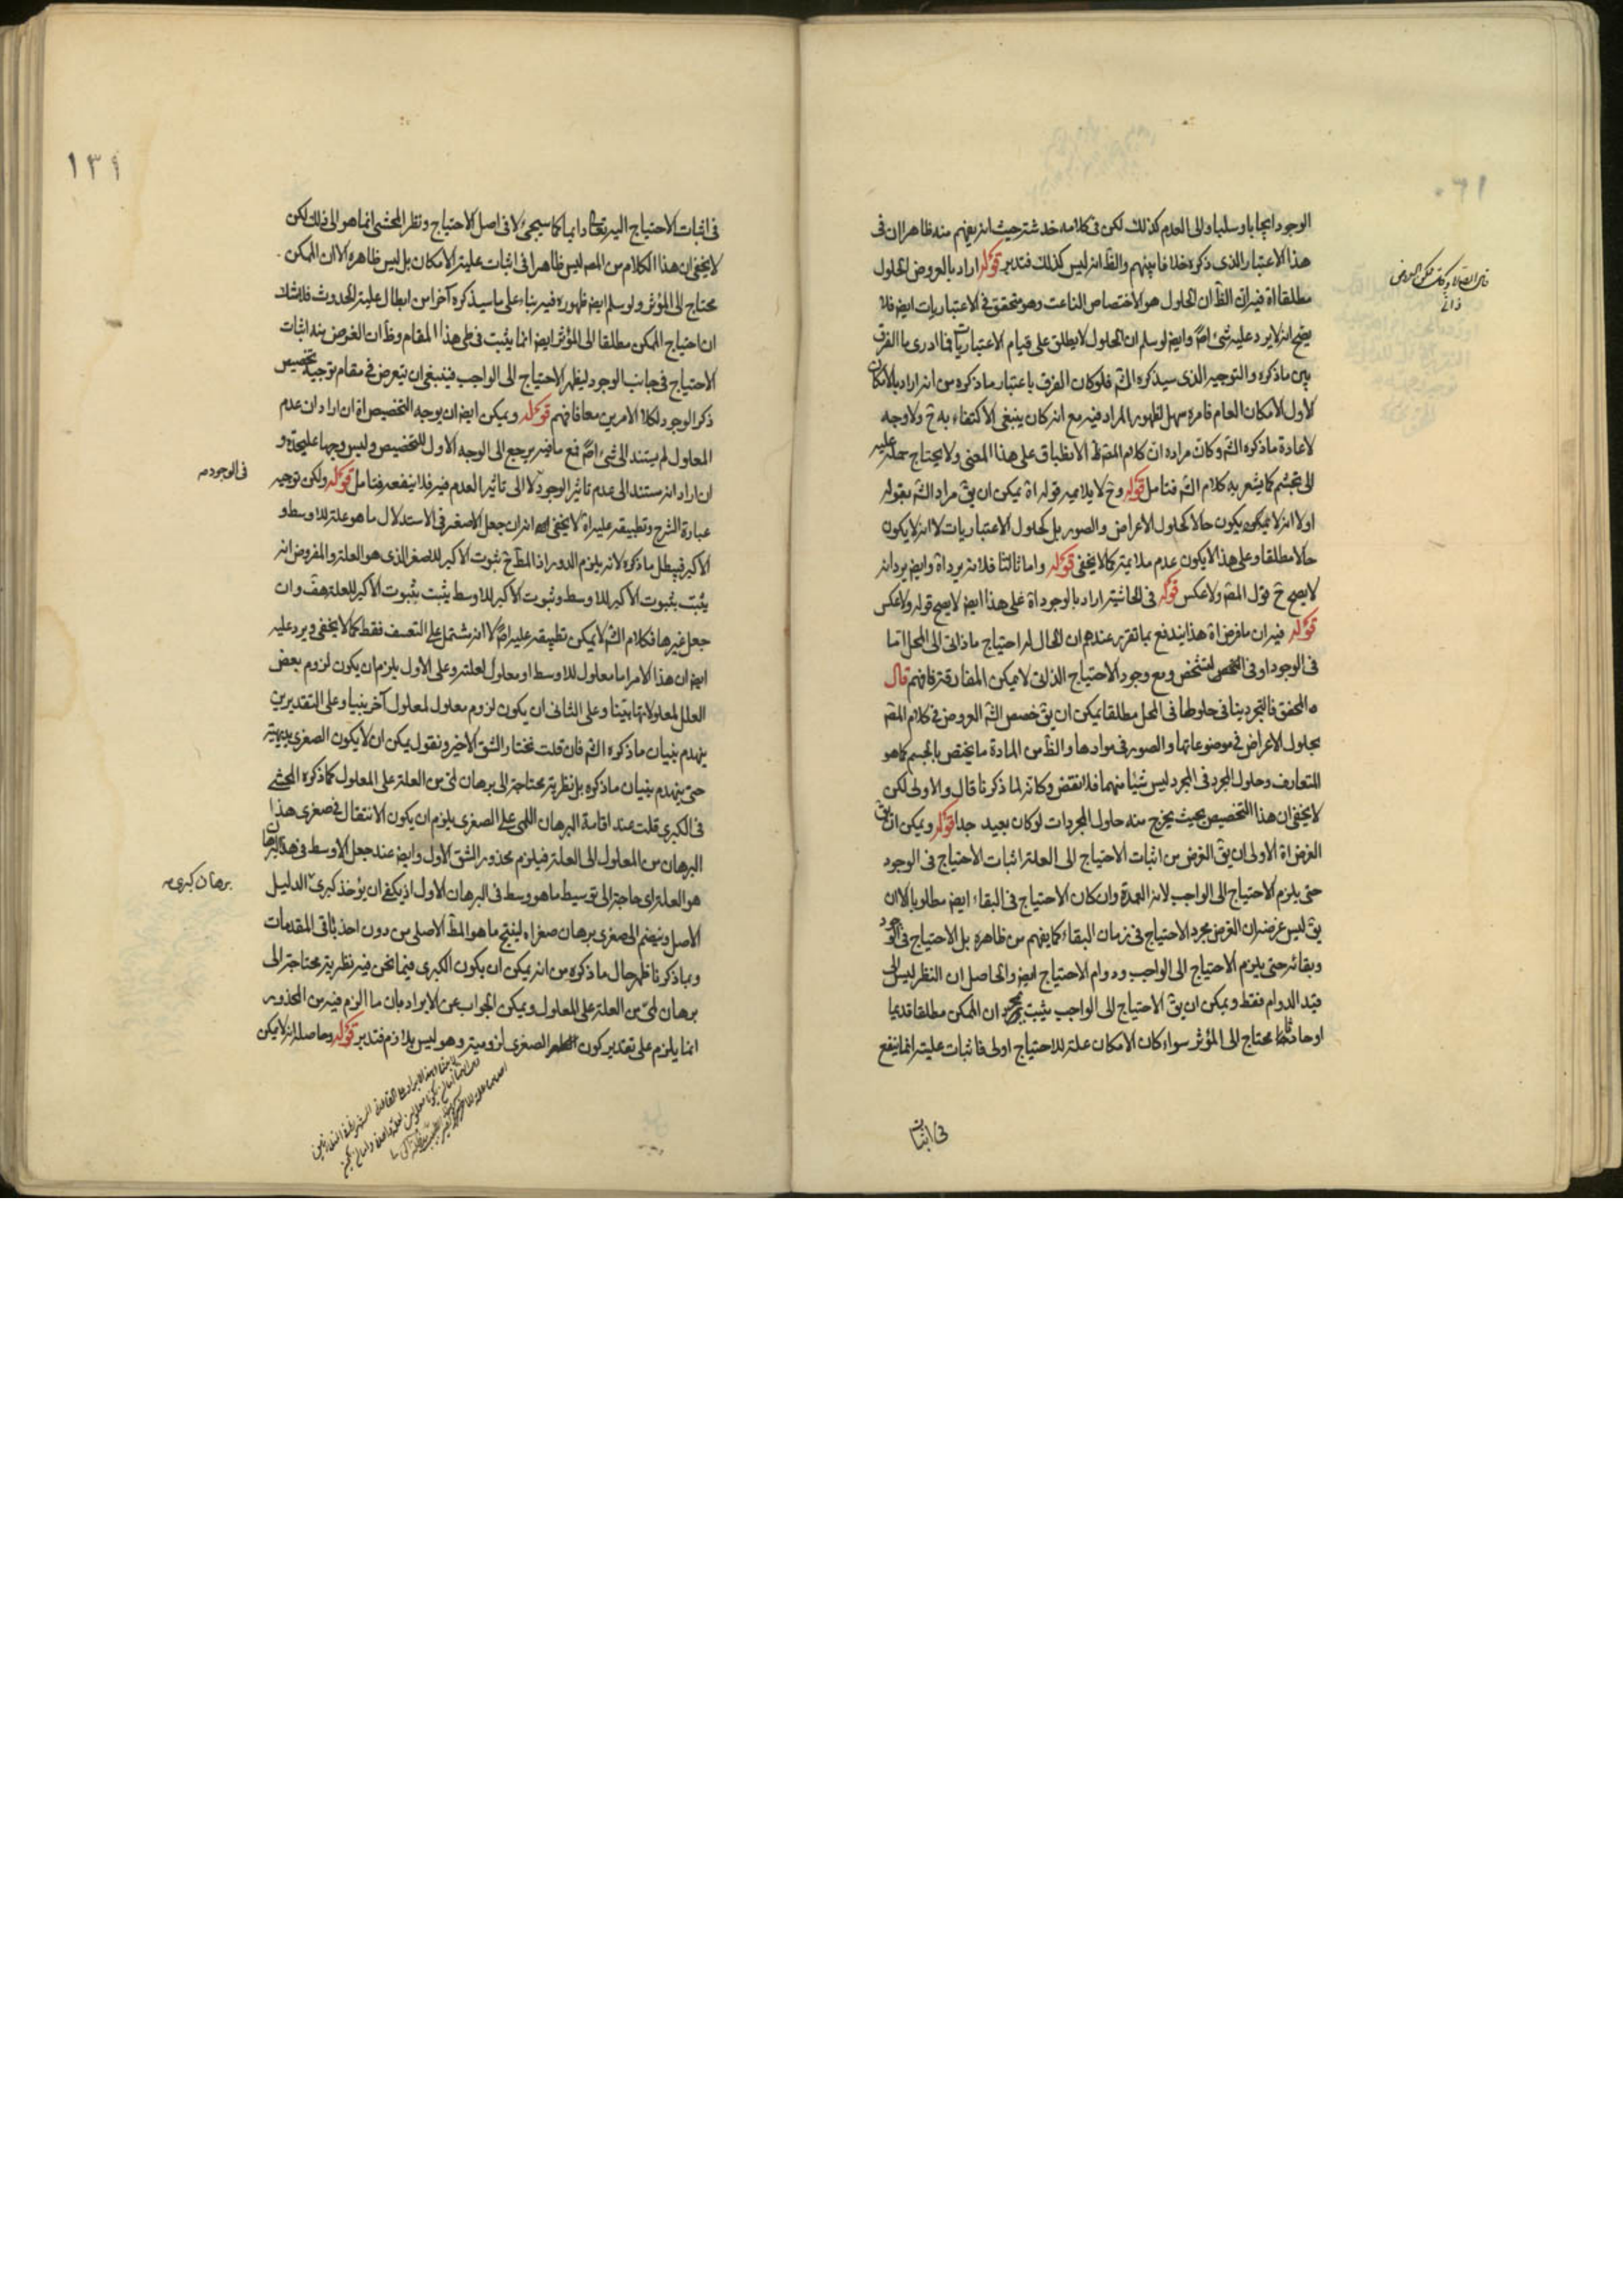 الوجود ايجابا وسلبا والى العدم كذلك لكن فى كلامه خدشة حيث انه يفهم منه ظاهرا ان فى
هذا الاعتبار الذى ذكره خلافا بينهم والظ انه ليس كذلك فتدبر قوله اراد بالعروض الحلول
مطلقا اه فيه ان الظ ان الحلول هو الاختصاص الناعت وهو متحقق فى الاعتباريات ايض فلا
يصح انه لا يرد عليه شئ اصلا وايض لو سلم ان الحلول لا يطلق على قيام الاعتباريات فما ادرى ما الفرق
بين ما ذكره والتوجيه الذى سيذكره الش فلو كان الفرق باعتبار ما ذكره من انه اراد بالامكان
الاول الامكان العام فامره سهل لظهور المراد فيه مع انه كان ينبغى الاكتفاء به ح ولا وجه
لاعادة ما ذكره الش وكان مراده ان كلام المص ظ الانطباق على هذا المعنى ولا يحتاج حمله عليه
الى تجشم كما يشعر به كلام الش فتامل قوله وح لا يلايمه قوله اه يمكن ان يق مراد الش بقوله
اولا انه لا يمكن يكون حالا كحلول الاعراض والصور بل كحلول الاعتباريات لا انه لا يكون
حالا مطلقا وعلى هذا لا يكون عدم ملايمة كما لا يخفى قوله واما ثالثا فلانه يرد اه وايض يرد انه
لا يصح ح قول المص ولا عكس قوله فى الحاشية اراد بالوجود اه على هذا ايض لا يصح قوله ولا عكس
قوله فيه ان ما فرض اه هذا يندفع بما تقرر عندهم ان الحال له احتياج ما ذاتى الى المحل اما
فى الوجود او فى التشخص ومع وجود الاحتياج الذاتى لا يمكن المفارقة فافهم قال
المحقق فالتجرد ينافى حلولها فى المحل مطلقا يمكن ان يق خصص الش العروض فى كلام المص
بحلول الاعراض فى موضوعاتها والصور فى موادها والظ من المادة ما يختص بالجسم كما هو
المتعارف وحلول المجرد فى المجرد ليس شيئا منهما فلا نقض وكانه لما ذكرنا قال والاولى لكن
لا يخفى ان هذا التخصيص بحيث يخرج منه حلول المجردات لو كان بعيد جدا قوله ويمكن ان يق
الغرض اه الاولى ان يق الغرض من اثبات الاحتياج الى العلة اثبات الاحتياج فى الوجود
حتى يلزم الاحتياج الى الواجب لانه العمدة وان كان الاحتياج فى البقاء ايض مطلوبا الا ان
يق ليس غرضه ان الغرض مجرد الاحتياج فى زمان البقاء كما يفهم من ظاهره بل الاحتياج فى الوجود
وبقائه حتى يلزم الاحتياج الى الواجب ودوام الاحتياج ايض والحاصل ان النظر ليس الى
قيد الدوام فقط ويمكن ان يق الاحتياج الى الواجب يثبت بمجرد ان الممكن مطلقا قديما
او حادثا محتاج الى المؤثر سواء كان الامكان علة للاحتياج اولى فاثبات علية انما ينفع
فى اثبات
فى اثبات الاحتياج اليه تعالى دايما كما سيجئ لا فى اصل الاحتياج ونظر المحشى انما هو الى ذلك لكن
لا يخفى ان هذا الكلام من المص ليس ظاهرا فى اثبات علية الامكان بل ليس ظاهره الا ان الممكن
محتاج الى المؤثر ولو سلم ايض ظهوره فيه بناء على ما سيذكره آخرا من ابطال علية الحدوث فلا شك
ان احتياج الممكن مطلقا الى المؤثر ايض انما يثبت فى طى هذا المقام وظ ان الغرض منه اثبات
الاحتياج فى جانب الوجود ليظهر الاحتياج الى الواجب فينبغى ان يتعرض فى مقام توجيه تخصيص
ذكر الوجود لكلا الامرين معا فافهم قوله ويمكن ايض ان يوجه التخصيص اه ان اراد ان عدم
المعلول لم يستند الى شئ اصلا فمع ما فيه يرجع الى الوجه الاول للتخصيص وليس وجها عليحدة و
ان اراد انه مستند الى عدم تاثير الوجود لا الى تاثير العدم فيه فلا ينفعه فتامل قوله ولكن توجيه
فى الوجود صه
عبارة الشرح وتطبيقه عليه اه لا يخفى انه ان جعل الاصغر فى الاستدلال ما هو علة للاوسط و
الاكبر فيبطل ما ذكره لانه يلزم الدور اذ المط ح ثبوت الاكبر للاصغر الذى هو العلة والمفروض انه
يثبت بثبوت الاكبر للاوسط وثبوت الاكبر للاوسط يثبت بثبوت الاكبر للعلة هف وان
جعل غيرها فكلام الش لا يمكن تطبيقه عليه اصلا لا انه مشتمل على التعسف فقط كما لا يخفى ويرد عليه
ايض ان هذا الامر اما معلول للاوسط او معلول لعلته وعلى الاول يلزم ان يكون لزوم بعض
العلل لمعلولاتها بينا وعلى الثانى ان يكون لزوم معلول لمعلول آخر بينا وعلى التقديرين
ينهدم بنيان ما ذكره الش فان قلت نختار الشق الاخير ونقول يمكن ان لا يكون الصغرى بديهية
حتى ينهدم بنيان ما ذكره بل نظرية محتاجة الى برهان لمى من العلة على المعلول كما ذكره المحشى
فى الكبرى قلت عند اقامة البرهان اللمى على الصغرى يلزم ان يكون الانتقال فى صغرى هذا
البرهان من المعلول الى العلة فيلزم محذور الشق الاول وايض عند جعل الاوسط فى هذا البرهان
هو العلة اى حاجة الى توسيط ما هو وسط فى البرهان الاول اذ يكفى ان يؤخذ كبرى الدليل
برهان كبرى صه
الاصل وينضم الى صغرى برهان صغراه لينتج ما هو المط الاصلى من دون اخذ باقى المقدمات
وبما ذكرنا ظهر حال ما ذكره من انه يمكن ان يكون الكبرى فيما نحن فيه نظرية محتاجة الى
برهان لمى من العلة على المعلول ويمكن الجواب عن الايراد بان ما الزم فيه من المحذور
انما يلزم على تقدير كون الصغرى لزومية وهو ليس بلازم فتدبر قوله وحاصله انه لا يمكن
١٣٩